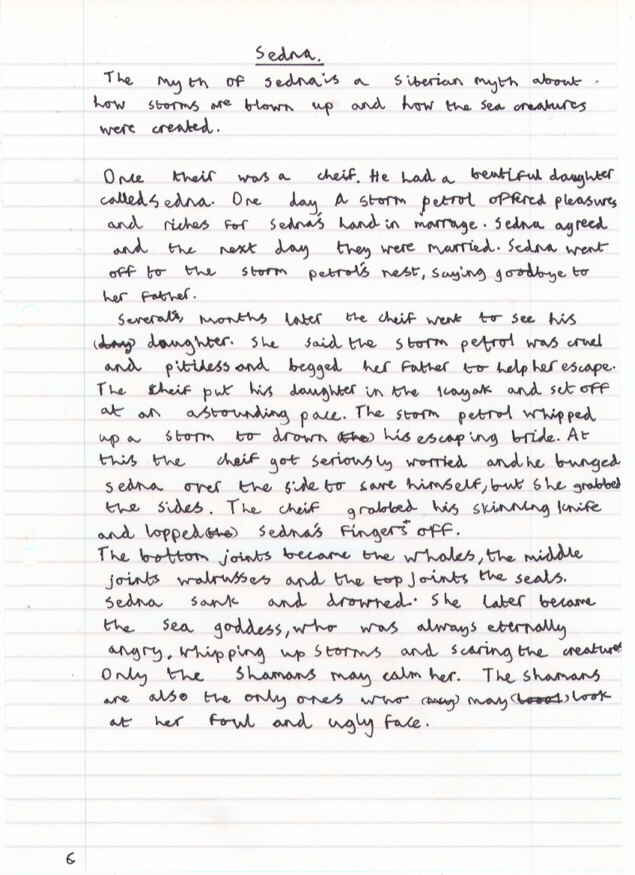 Sedna.
The myth of Sedna is a Siberian myth about
how storms are blown up and how the sea creatures
were created.
Once their was a cheif. He had a beutiful daughter
called Sedna. One day A storm petrol offered pleasures
and riches for Sedna's hand in marrage. Sedna agreed
and the next day they were married. Sedna went
off to the storm petrol's nest, saying goodbye to
her father.
Several months later the cheif went to see his
daughter. She said the storm petrol was cruel
and pitiless and begged her father to help her escape.
The cheif put his daughter in the kayak and set off
at an astounding pace. The storm petrol whipped
up a storm to drown (the) his escaping bride. At
this the cheif got seriously worried and he bunged
Sedna over the side to save himself, but she grabbed
the sides. The cheif grabbed his skinning knife
and lopped (the) Sedna's fingers off.
The bottom joints became the whales, the middle
joints walrusses and the top joints the seals.
Sedna sank and drowned. She later became
the sea goddess, who was always eternally
angry, whipping up storms and scaring the creatures
Only the Shamans may calm her. The shamans
are also the only ones who may look
at her foul and ugly face.
6